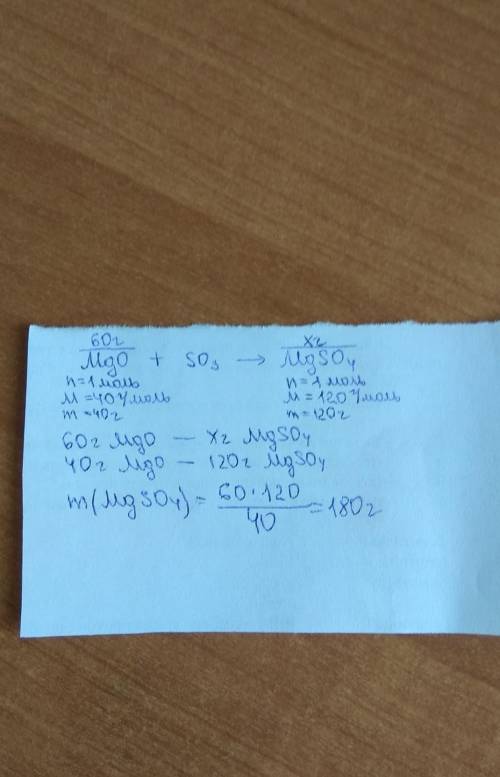 60г xг
MgO + SO₃ → MgSO₄
n=1 моль n=1 моль
M=40 г/моль M=120 г/моль
m=40г m=120г
60г MgO — xг MgSO₄
40г MgO — 120г MgSO₄
m(MgSO₄) = 60·120/40 = 180г